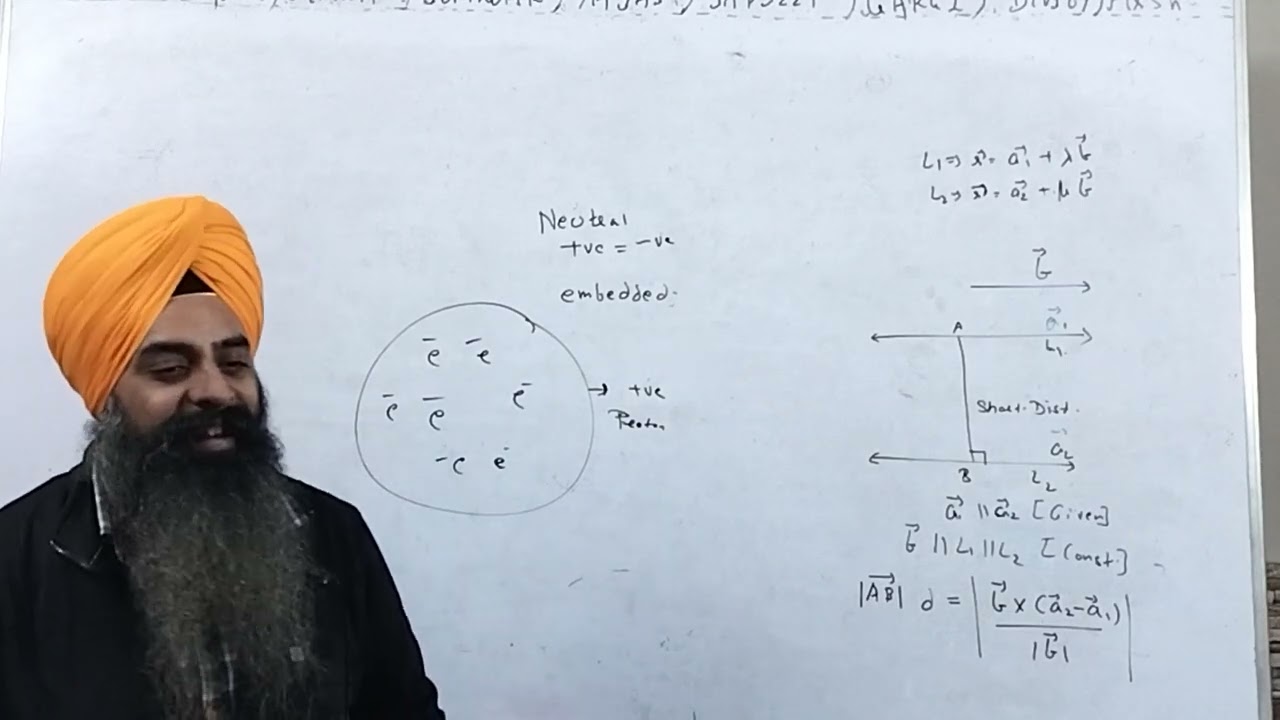 Neutral
+ve = -ve
embedded.
e⁻ e⁻
e⁻ e⁻ e⁻
e⁻ e⁻
→ +ve
Proton
L₁ ⇒ r⃗ = a⃗₁ + λb⃗
L₂ ⇒ r⃗ = a⃗₂ + μb⃗
b⃗
A
a⃗₁
L₁
Short. Dist.
a⃗₂
B
L₂
a⃗ || a⃗₂ [Given]
b⃗ || L₁ || L₂ [Const.]
|AB⃗| d = | b⃗ × (a⃗₂ - a⃗₁) / |b⃗| |